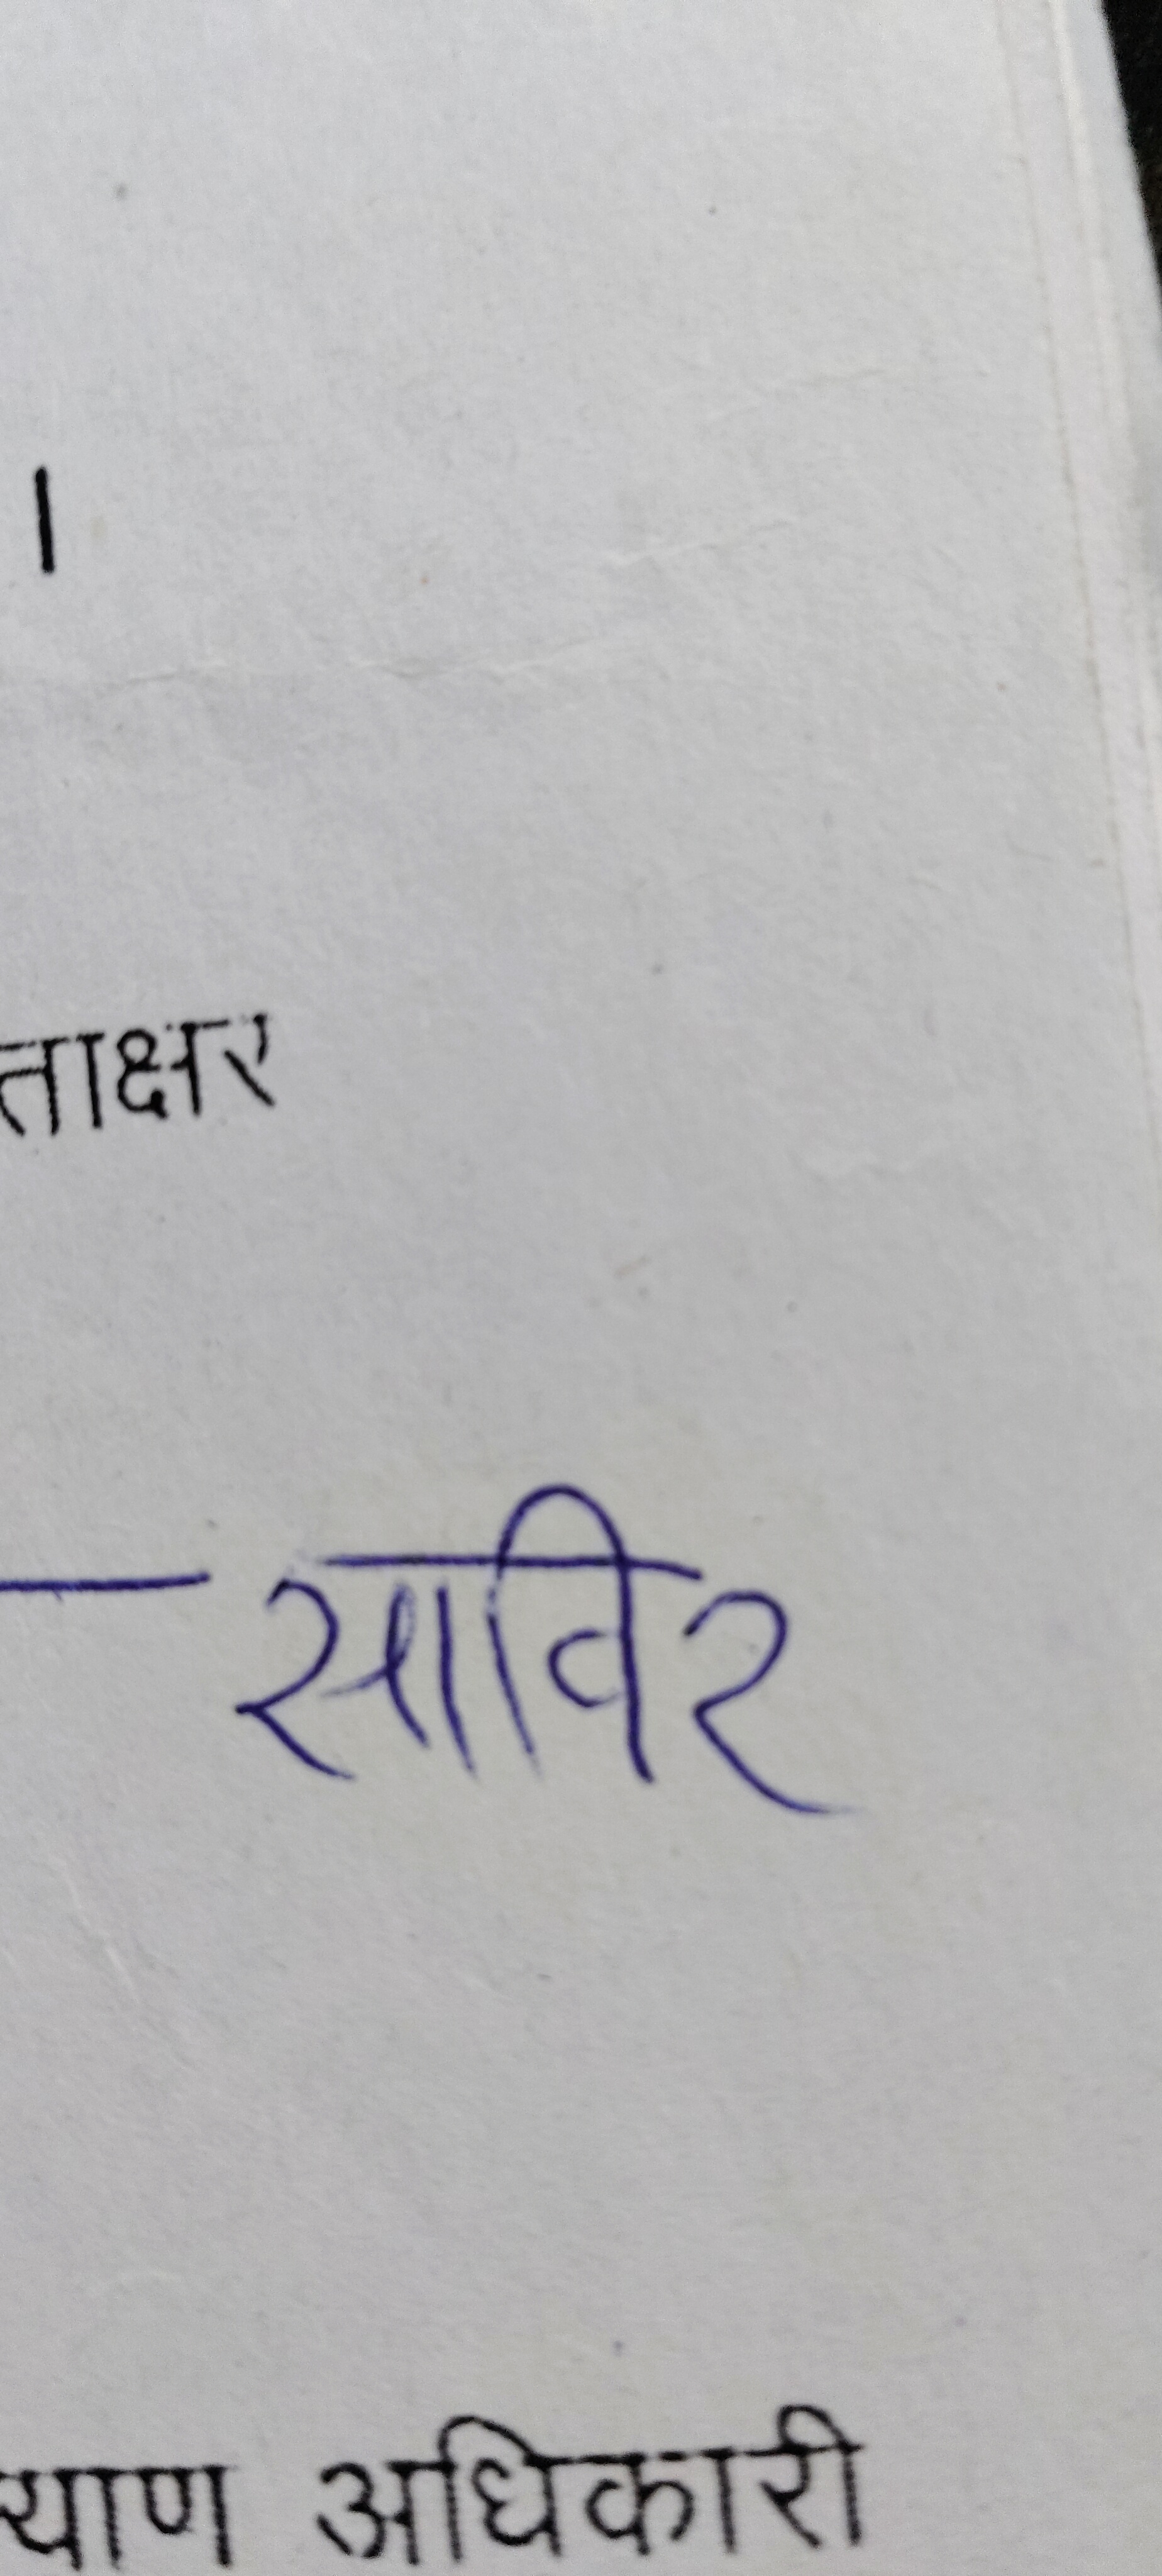 ।
ताक्षर
साविर
याण अधिकारी